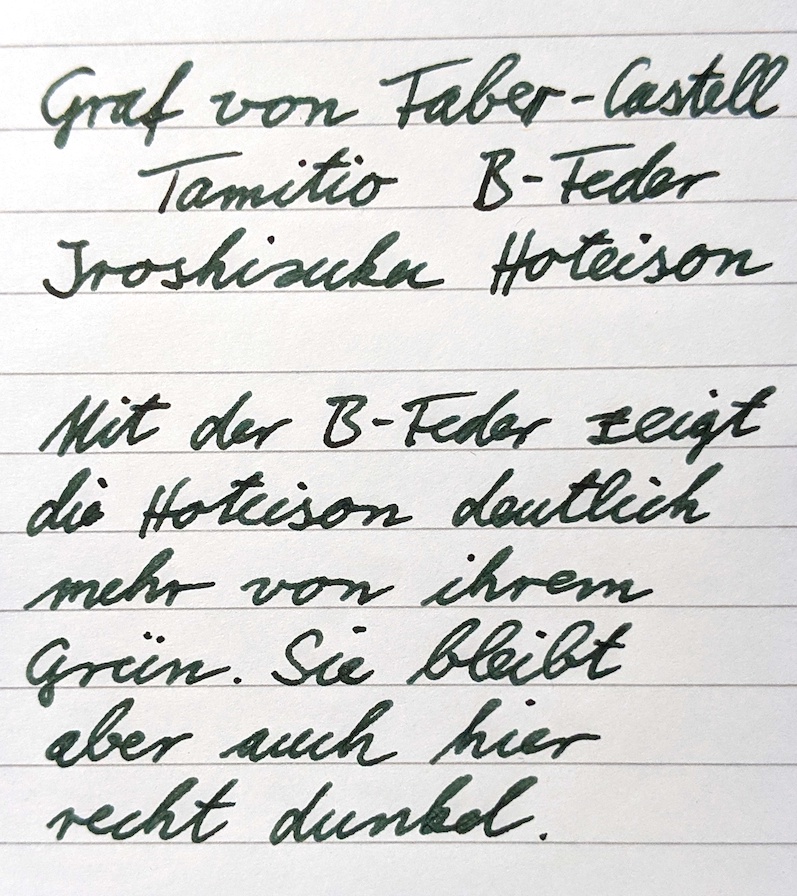 Graf von Faber-Castell
Tamitio B-Feder
Iroshizuku Hoteison
Mit der B-Feder zeigt
die Hoteison deutlich
mehr von ihrem
Grün. Sie bleibt
aber auch hier
recht dunkel.